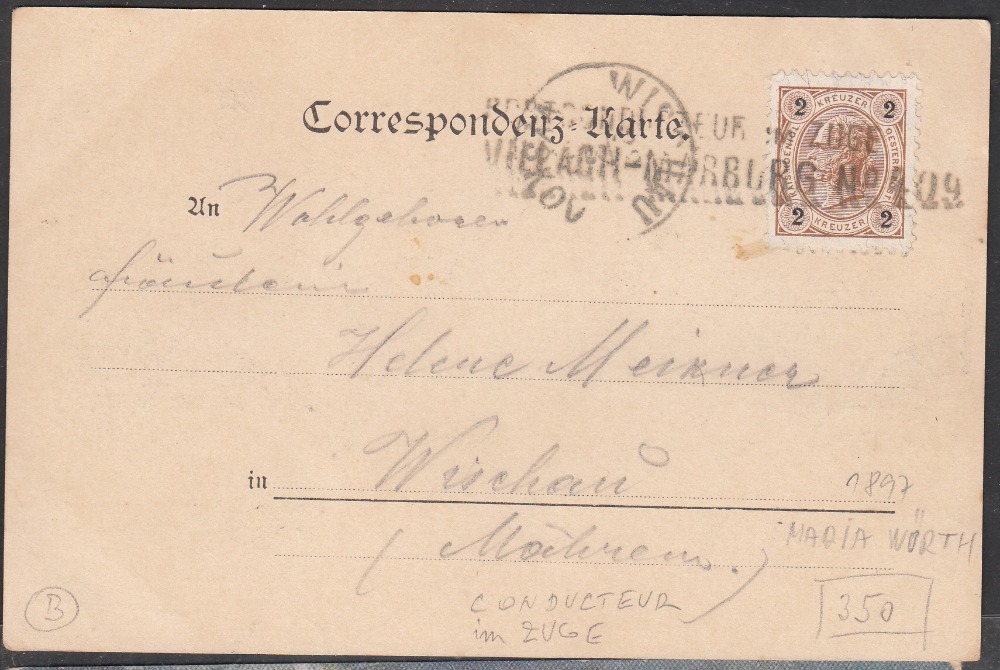 Correspondenz-Karte.
POSTCONDUCTEUR IM ZUGE
VILLACH-MARBURG No 409
WISCHAU
2 KREUZER 2
2 KREUZER 2
An Wohlgeboren
Fräulein
Helene Meixner
in Wischau
(Mähren.)
1897
MARIA WÖRTH
B
CONDUCTEUR
im ZUGE
350